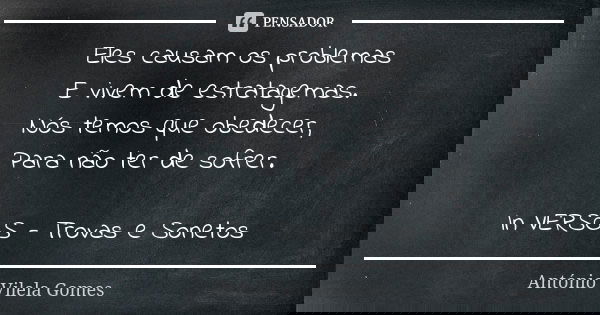 PENSADOR
Eles causam os problemas
E vivem de estratagemas.
Nós temos que obedecer,
Para não ter de sofrer.
In VERSOS - Trovas e Sonetos
António Vilela Gomes